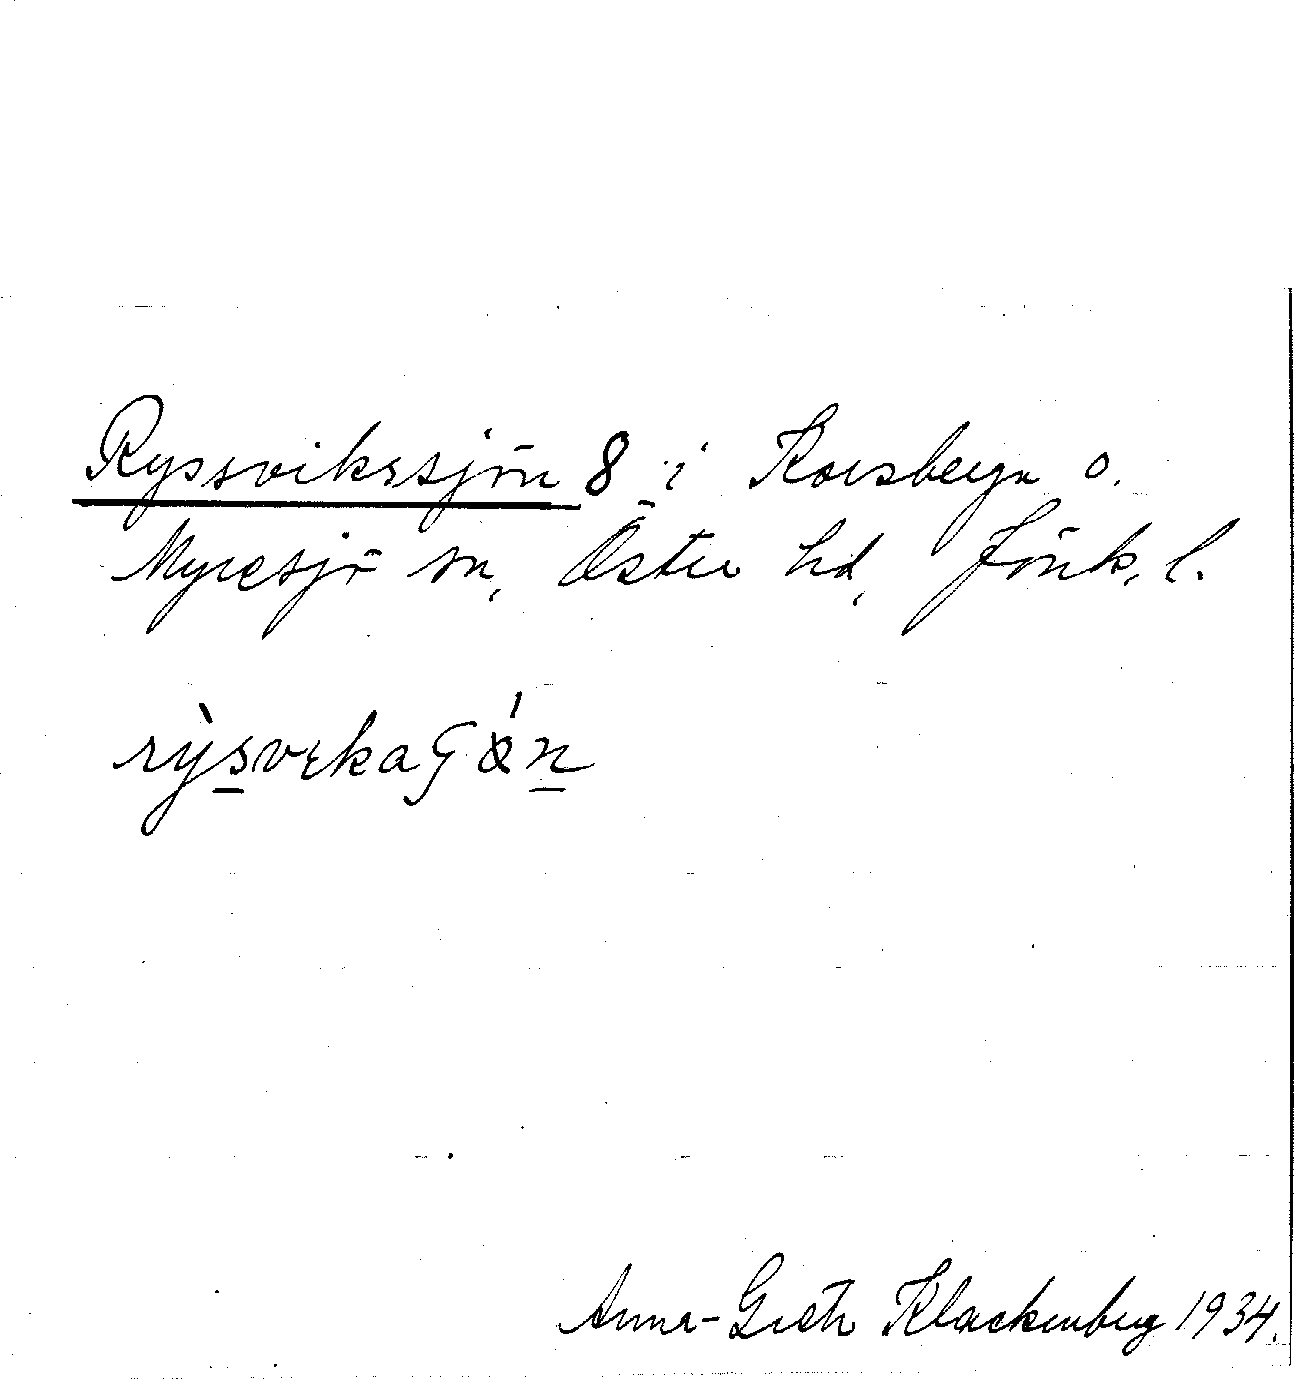 Ryssvikssjön 8 i Korsberga o.
Myresjö sn, Östra hd, Jönk. l.
rỳsvekaʕǿn
Anna-Greta Klackenberg 1934.